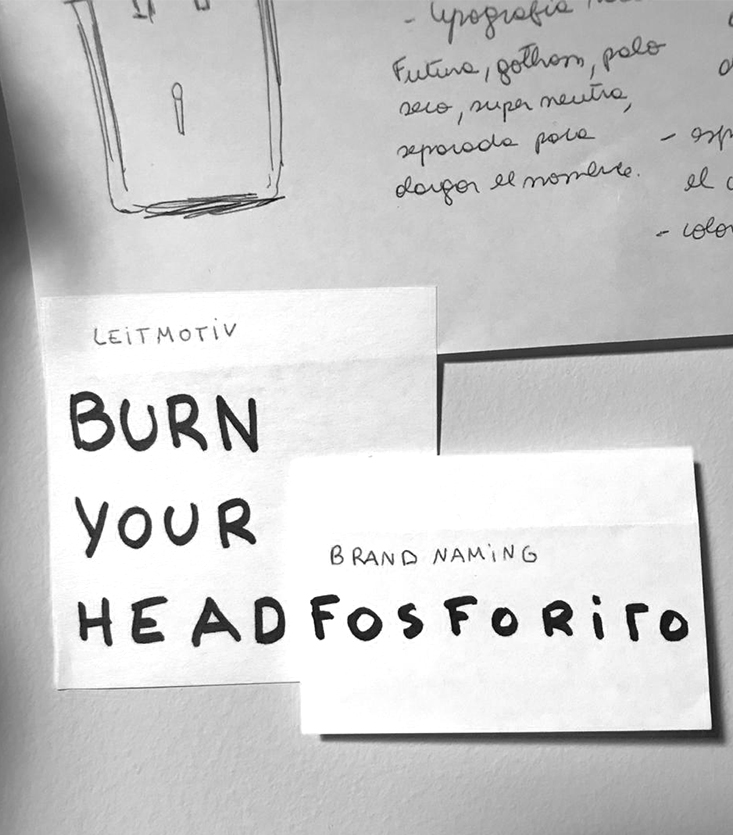 - Tipografía
Futura, gotham, palo
seco, super neutra,
separada para
dargar el nombre.
- esp
el
- colo
LEiTMOTiV
BURN
YOUR
HEAD
BRAND NAMiNG
FOSFORiTO